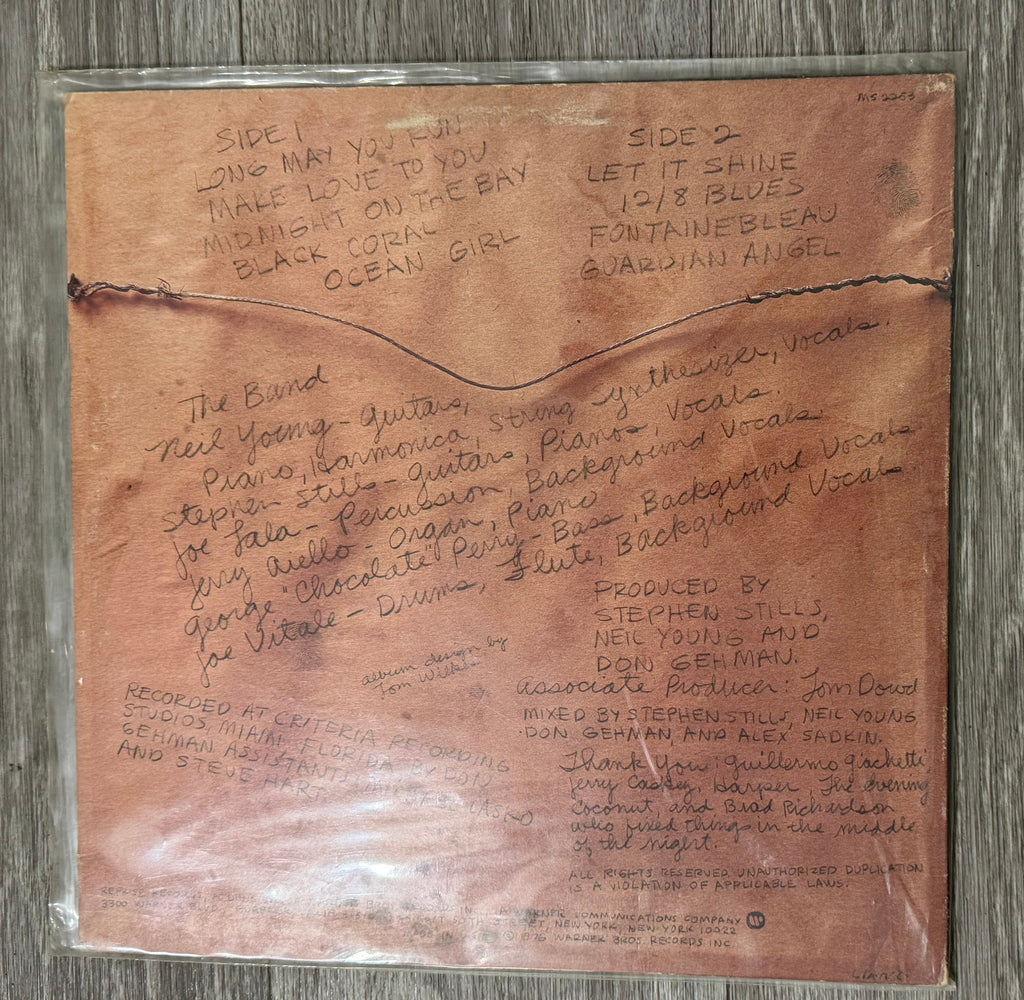 MS 2253
SIDE 1
LONG MAY YOU RUN
MAKE LOVE TO YOU
MIDNIGHT ON THE BAY
BLACK CORAL
OCEAN GIRL
SIDE 2
LET IT SHINE
12/8 BLUES
FONTAINEBLEAU
GUARDIAN ANGEL
The Band
Neil Young - Guitars,
Piano, Harmonica, String Synthesizer, Vocals.
Stephen Stills - Guitars, Pianos, Vocals.
Joe Lala - Percussion, Background Vocals
Jerry Aiello - Organ, Piano
George "Chocolate" Perry - Bass, Background Vocals
Joe Vitale - Drums, Flute, Background Vocals.
album design by
Tom Wilkes
PRODUCED BY
STEPHEN STILLS,
NEIL YOUNG AND
DON GEHMAN.
Associate Producer: Tom Dowd
MIXED BY STEPHEN STILLS, NEIL YOUNG,
DON GEHMAN, AND ALEX SADKIN.
RECORDED AT CRITERIA RECORDING
STUDIOS, MIAMI, FLORIDA BY DON
GEHMAN ASSISTANTS
AND STEVE HART
Thank You: Guillermo Giachetti,
Jerry Caskey, Harper, The evening
Coconut, and Brad Richardson
who fixed things in the middle
of the night.
ALL RIGHTS RESERVED. UNAUTHORIZED DUPLICATION
IS A VIOLATION OF APPLICABLE LAWS.
REPRISE RECORDS, A WARNER COMMUNICATIONS COMPANY
3300 WARNER STREET, NEW YORK, NEW YORK 10022
© 1976 WARNER BROS. RECORDS INC.